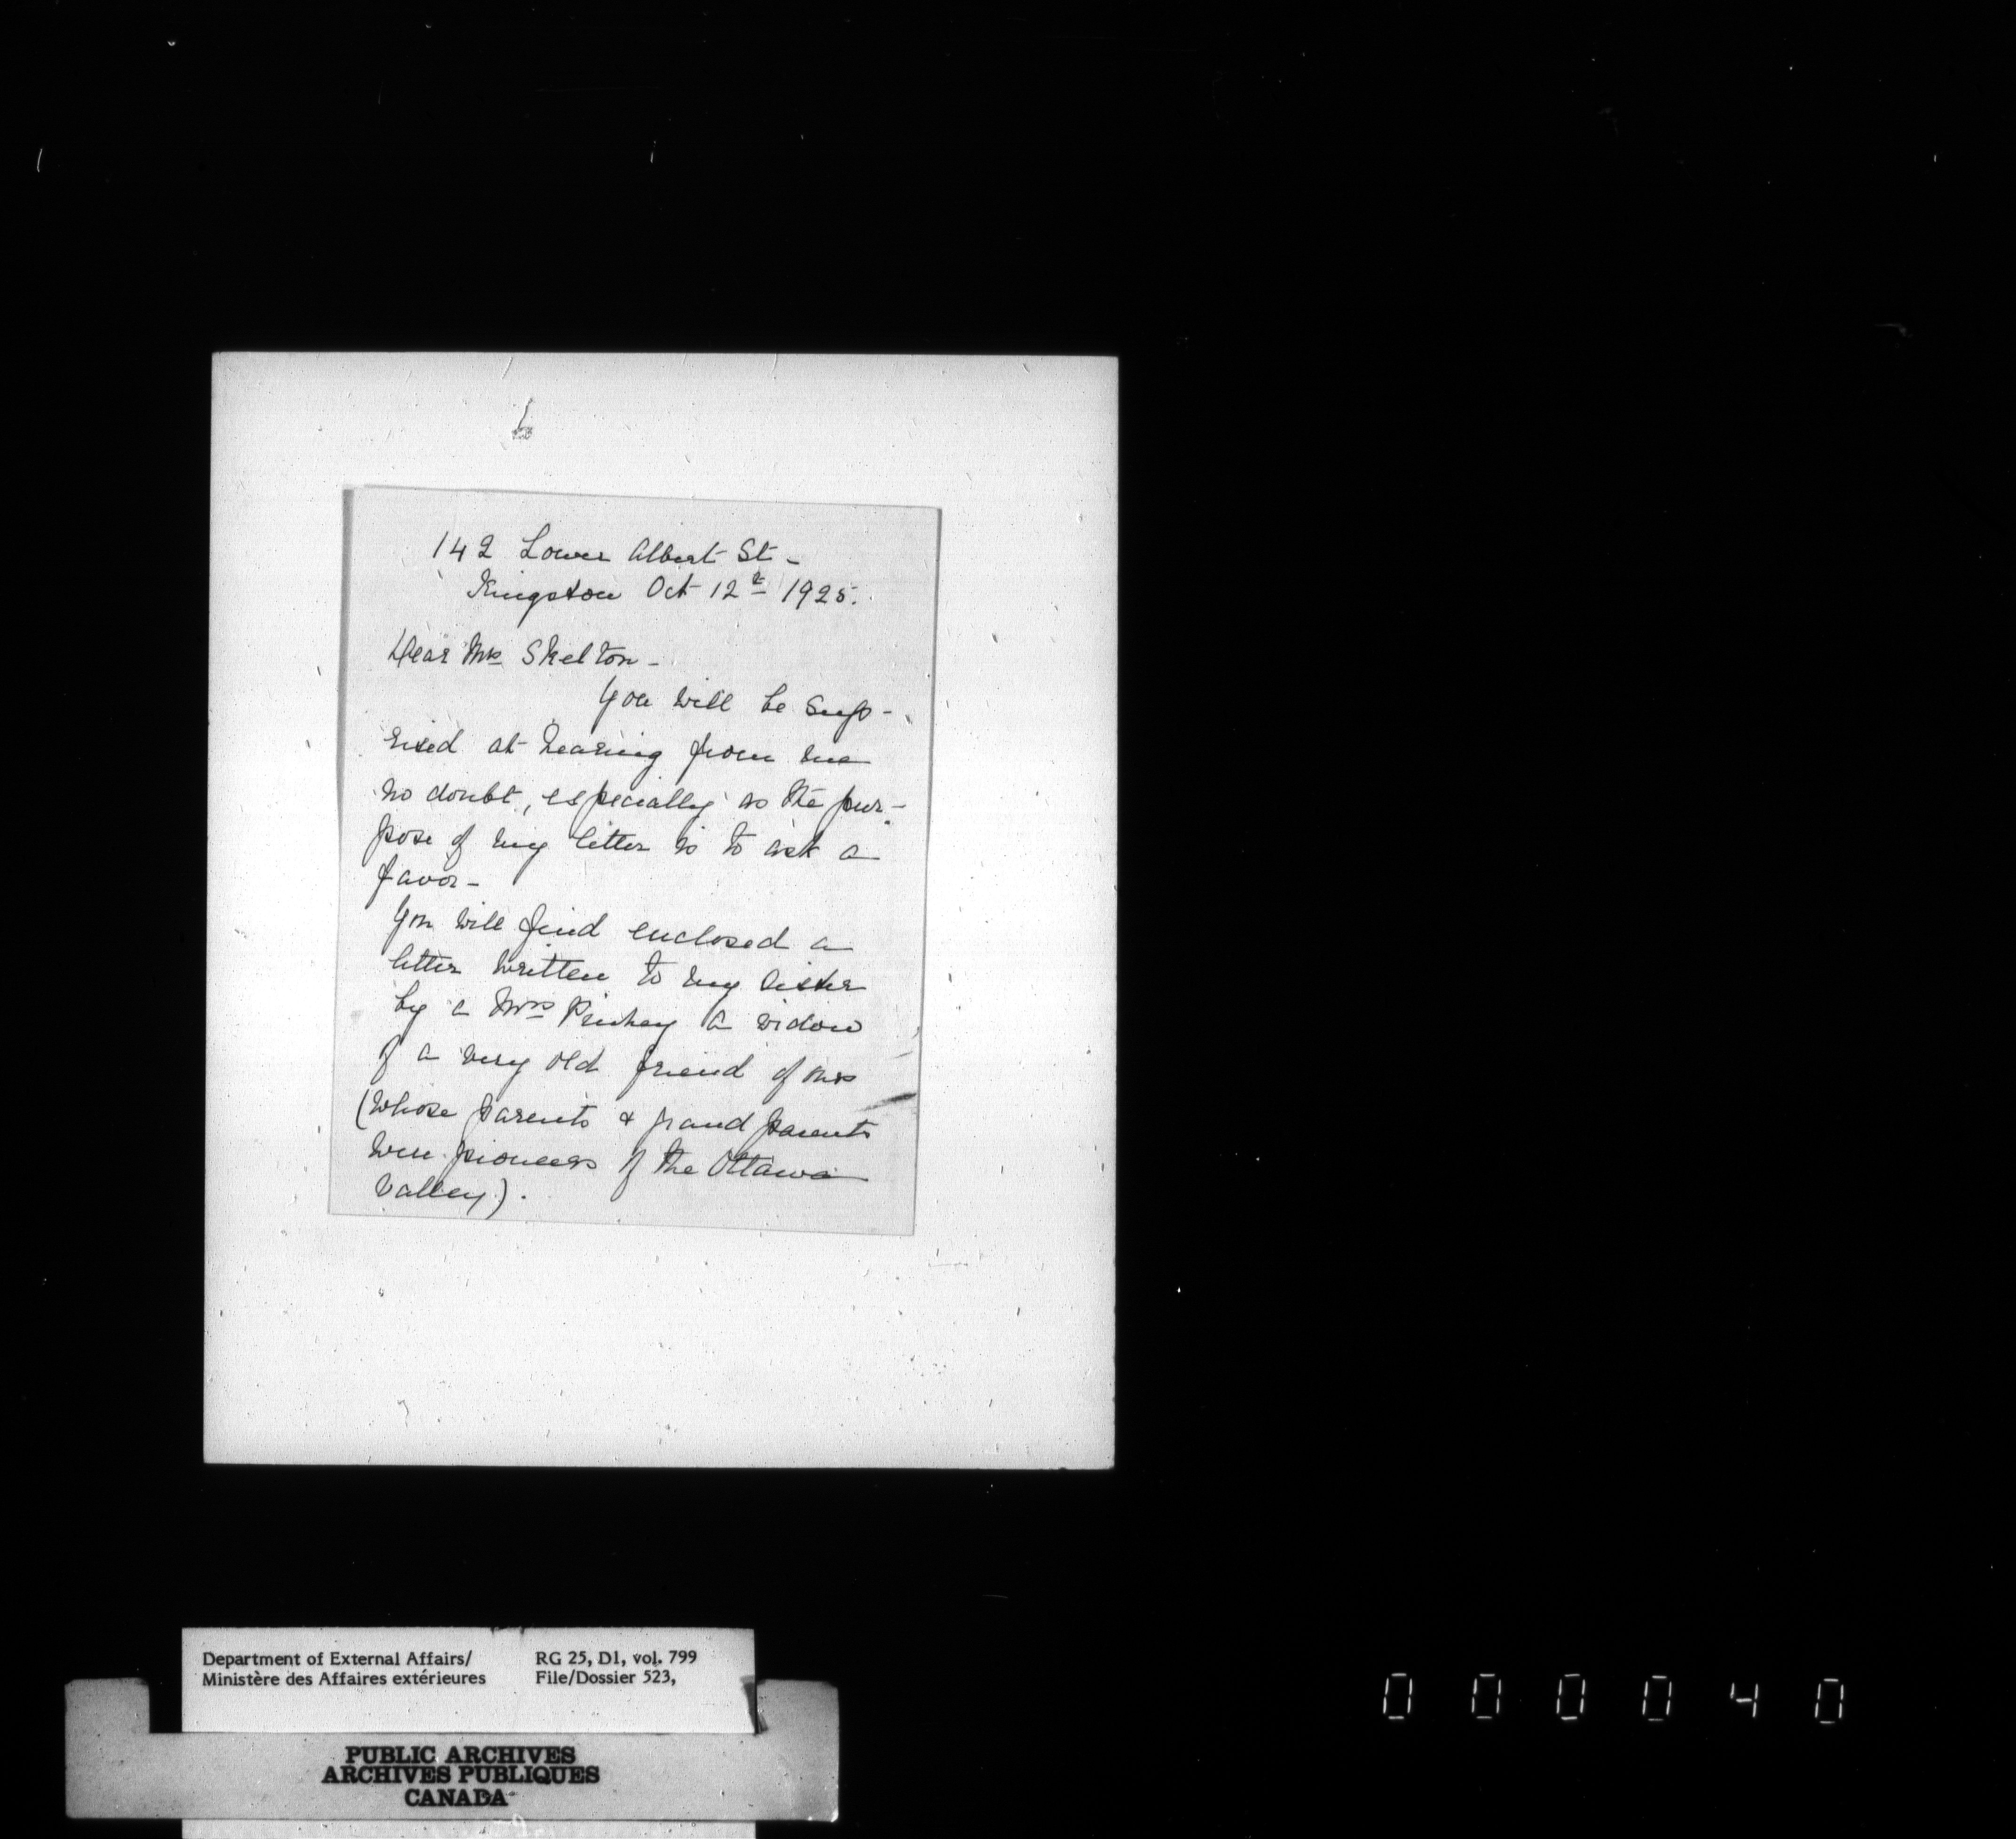 142 Lower Albert St -
Kingston Oct 12th 1925.
Dear Mr Skelton -
You will be surp-
rised at hearing from me
no doubt, especially as the pur-
pose of my letter is to ask a
favor -
You will find enclosed a
letter written to my sister
by a Mrs Pinhey a widow
of a very old friend of ours
(whose parents & grand parents
were pioneers of the Ottawa
Valley).
Department of External Affairs/
Ministère des Affaires extérieures
RG 25, D1, vol. 799
File/Dossier 523,
PUBLIC ARCHIVES
ARCHIVES PUBLIQUES
CANADA
000040